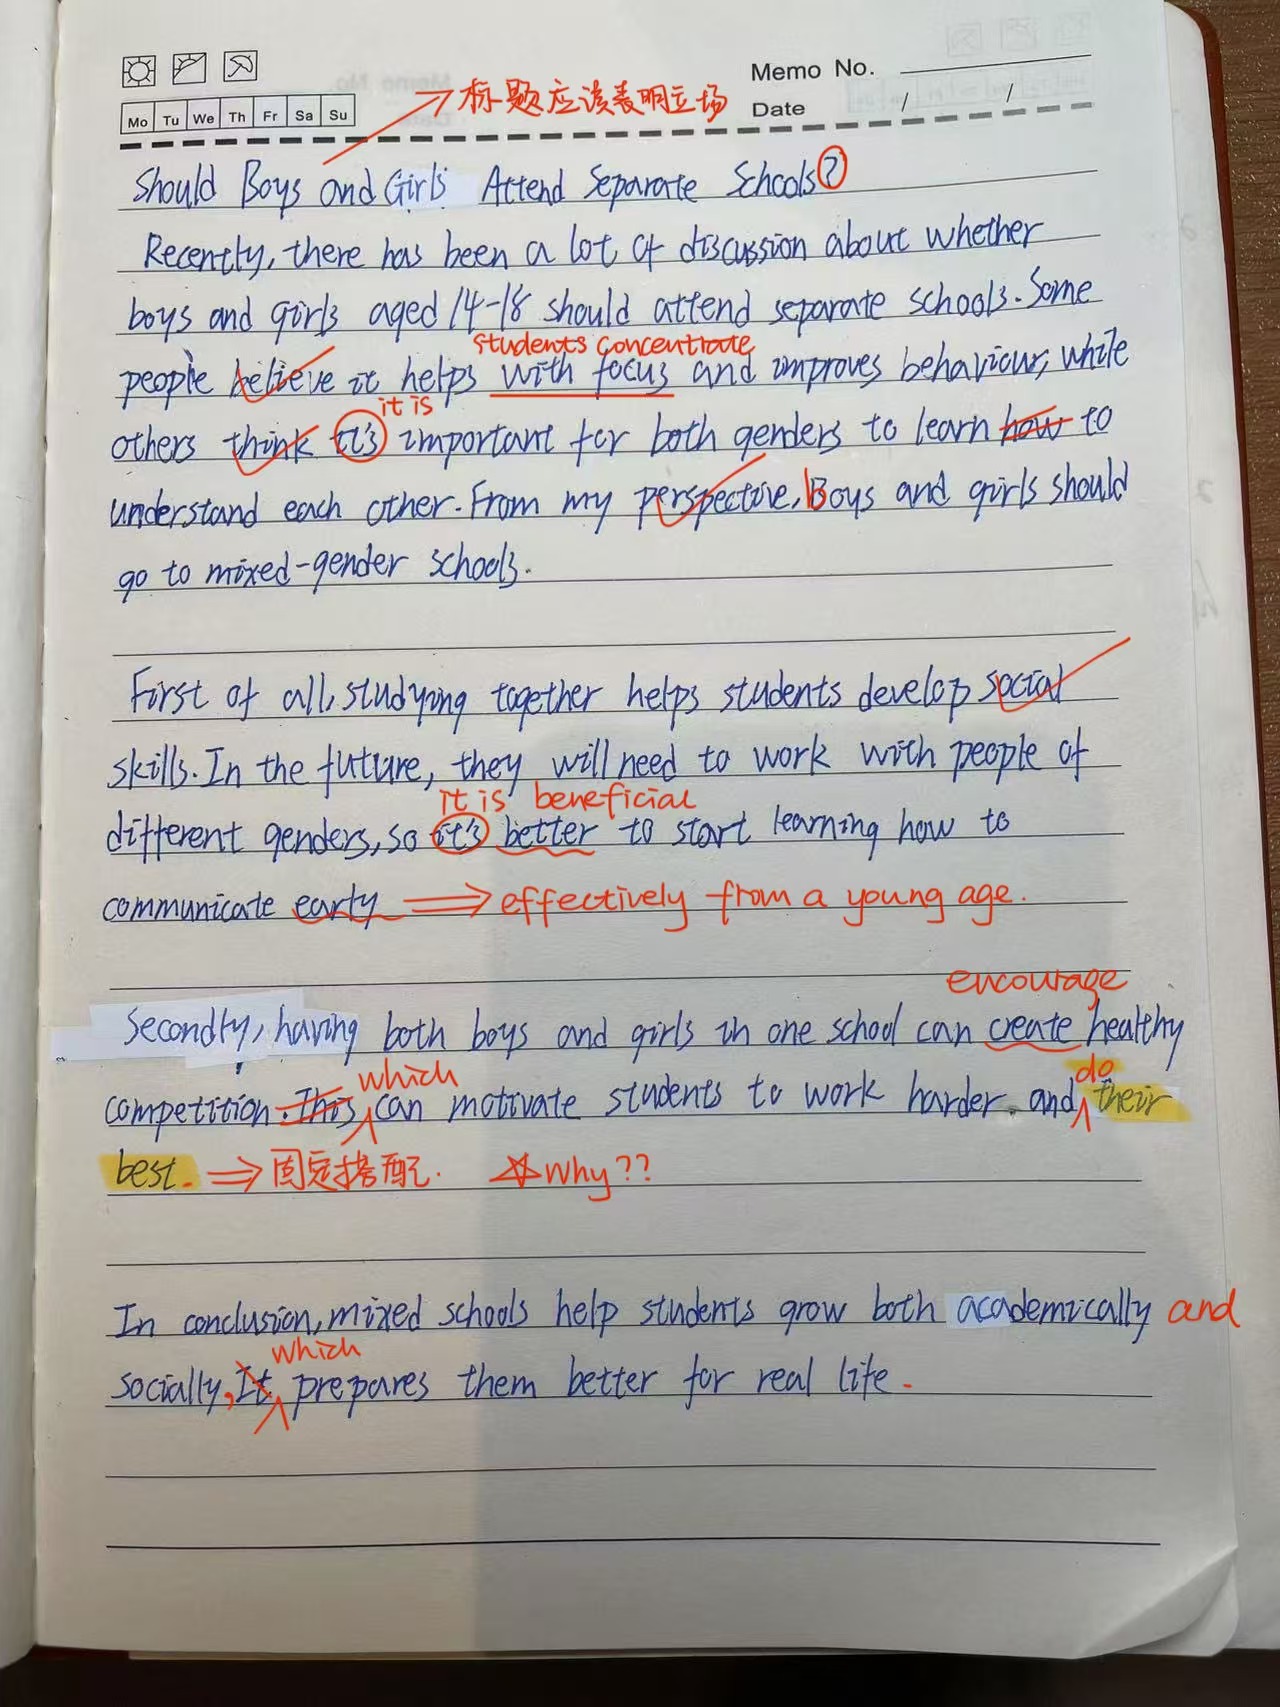 Memo No.
Mo Tu We Th Fr Sa Su
Date / /
标题应该表明立场
Should Boys and Girls Attend Separate Schools?
Recently, there has been a lot of discussion about whether
boys and girls aged 14-18 should attend separate schools. Some
students concentrate
people believe it helps with focus and improves behaviour, while
it is
others think it's important for both genders to learn how to
understand each other. From my perspective, Boys and girls should
go to mixed-gender schools.
First of all, studying together helps students develop social
skills. In the future, they will need to work with people of
it is beneficial
different genders, so it's better to start learning how to
communicate early ⇒ effectively from a young age.
encourage
Secondly, having both boys and girls in one school can create healthy
which do
competition. This can motivate students to work harder. and their
best. ⇒ 固定搭配. Why??
In conclusion, mixed schools help students grow both academically and
which
socially, It prepares them better for real life.